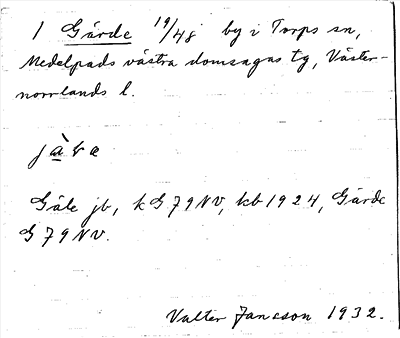 1 Gärde 19/48j by i Torps sn,
Medelpads västra domsagas tg, Väster-
norrlands l.
Gäle jb, k G 79 NV, kb 1924, Gärde
G 79 NV.
Valter Jansson 1932.